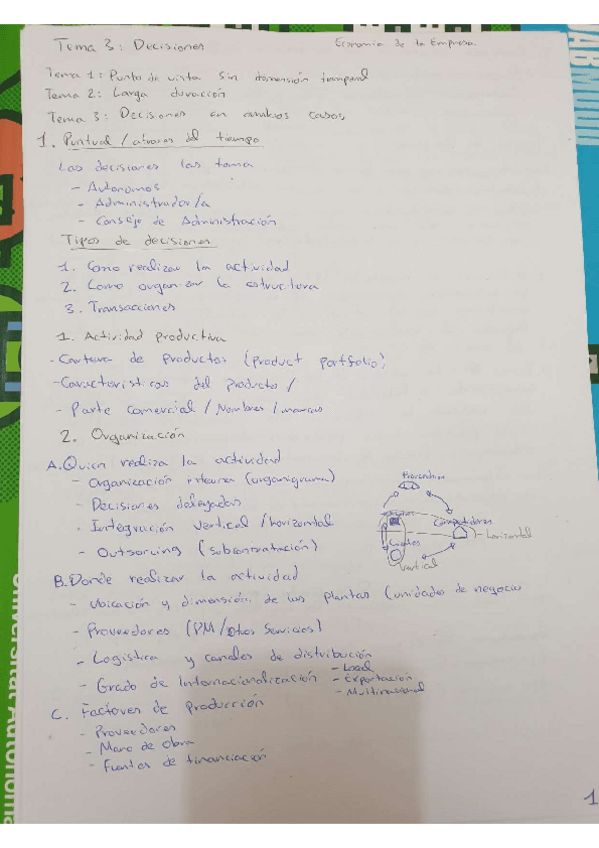 Tema 3: Decisiones
Economia de la Empresa
Tema 1: Punto de vista sin dimensión temporal
Tema 2: Larga duración
Tema 3: Decisiones en ambos casos
1. Puntual / atraves del tiempo
Las decisiones las toma
- Autonomos
- Administrador/a
- Consejo de Administración
Tipos de decisiones
1. Como realizar la actividad
2. Como organizar la estructura
3. Transacciones
1. Actividad productiva
- Cartera de productos (product portfolio)
- Caracteristicas del producto /
- Parte comercial / Nombres / marcas
2. Organización
A. Quien realiza la actividad
- Organización interna (organigrama)
- Decisiones delegadas
- Integración vertical / horizontal
- Outsorcing (subcontratación)
Proveedores
Competidores
- horizontal
Clientes
Vertical
B. Donde realizar la actividad
- Ubicación y dimensión de las plantas (unidades de negocio
- Proveedores (PM/Otros Servicios)
- Logistica y canales de distribución
- Grado de Internacionalización
- Local
- Exportación
- Multinacional
C. Factores de Producción
- Proveedores
- Mano de Obra
- Fuentes de financiación
1
Universitat Autònoma